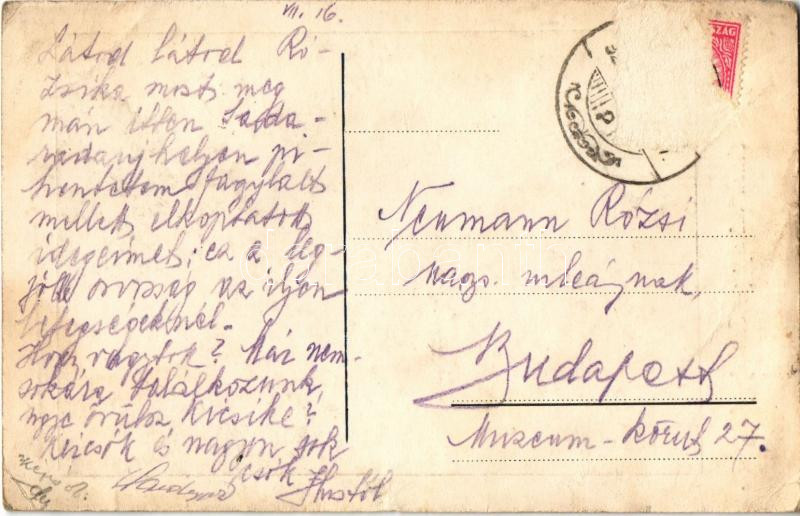 VII. 16.
Látod látod Ró-
zsika most meg
már itten
helyen pi-
hentetem fagylalt
mellett elkoptatott
idegeimet; ez a leg-
jobb orvosság az ilyen
betegségeknél.
Hogy vagytok? Már nem-
sokára találkozunk,
ugye örülsz kicsike?
Kézcsók és nagyon sok
csók
Ilustól
Neumann Rózsi
nagys. urleánynak,
Budapest
Muzeum-körut 27.
SZÁG